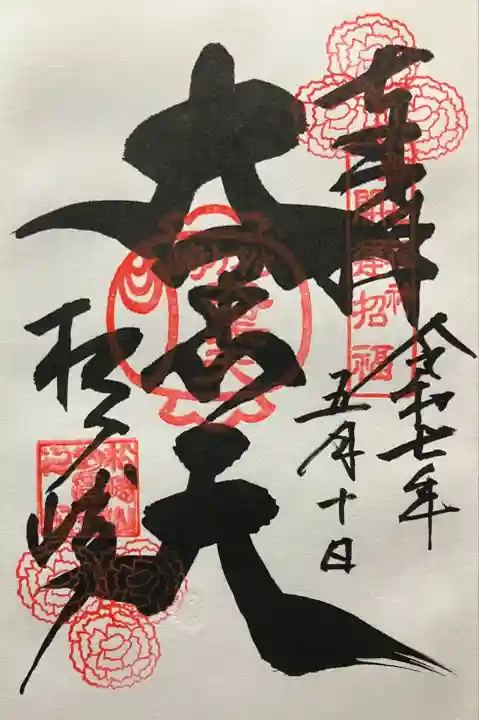 奉拝
開運招福
令和七年
五月十日
大黒天
松ヶ崎